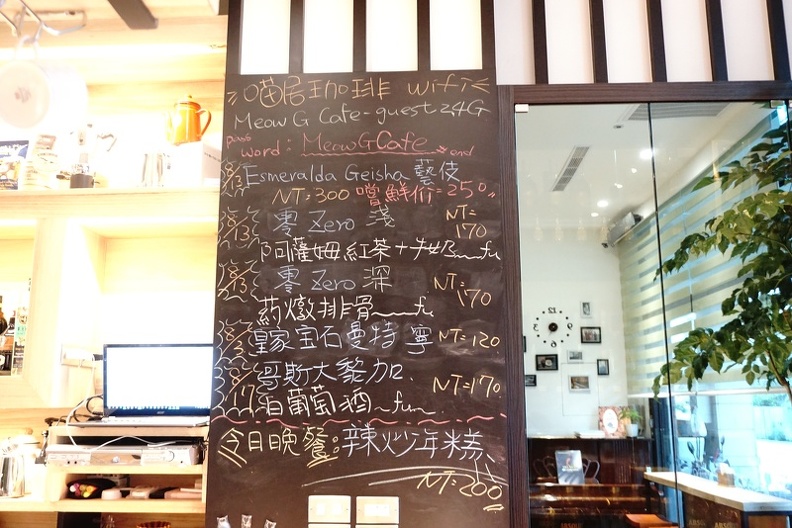 喵居珈琲 wifi
Meow G Cafe-guest 2.4G
pass word: MeowGCafe end
Esmeralda Geisha 藝伎
NT:300 嚐鮮价=250
零 Zero 淺 NT=170
阿薩姆紅茶+
零 Zero 深 NT:170
药燉排骨~fu
皇家宝石曼特寧 NT=120
哥斯大黎加. NT=170
白葡萄酒~fun
今日晚餐:辣炒年糕
NT:200